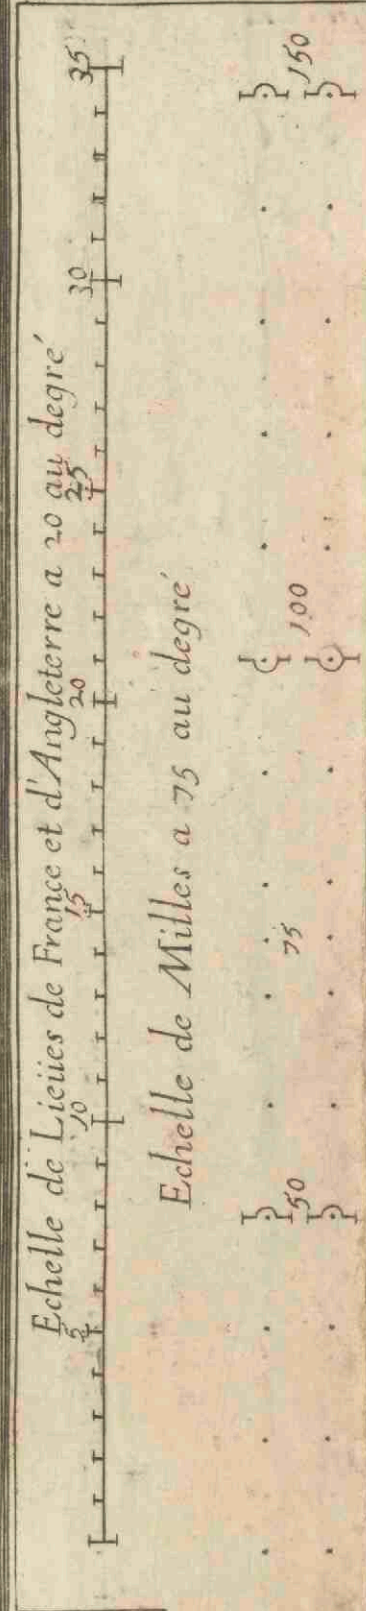 Echelle de Lieües de France et d'Angleterre a 20 au degré
5 10 15 20 25 30 35
Echelle de Milles a 75 au degré
50 75 100 150